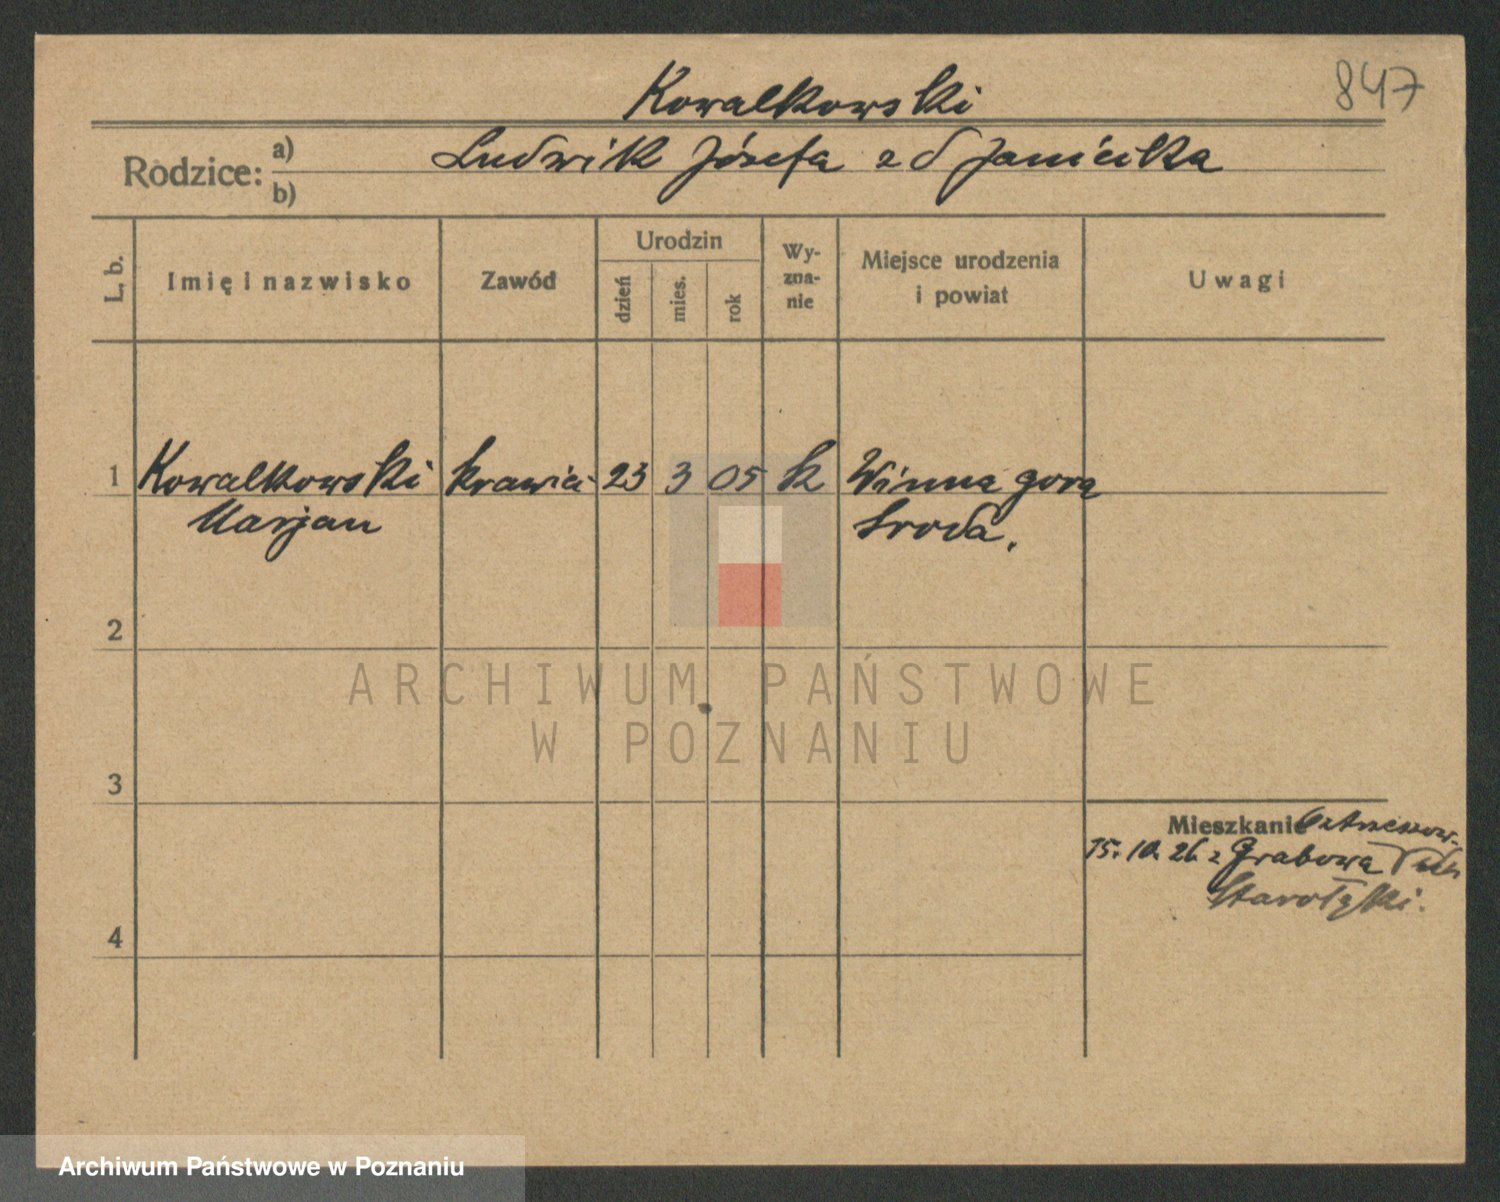 847
Kowalkowski
Rodzice: a) Ludwik Józefa z d Janicka
b)
L. b.
Imię i nazwisko
Zawód
Urodzin
dzień
mies.
rok
Wy-
zna-
nie
Miejsce urodzenia
i powiat
Uwagi
1 Kowalkowski krawiec 23 3 05 k Winna gora
Marjan Sroda.
2
3
4
Mieszkanie
15. 10. 26 z Grabowa
Starołęki.
ARCHIWUM PAŃSTWOWE
W POZNANIU
Archiwum Państwowe w Poznaniu